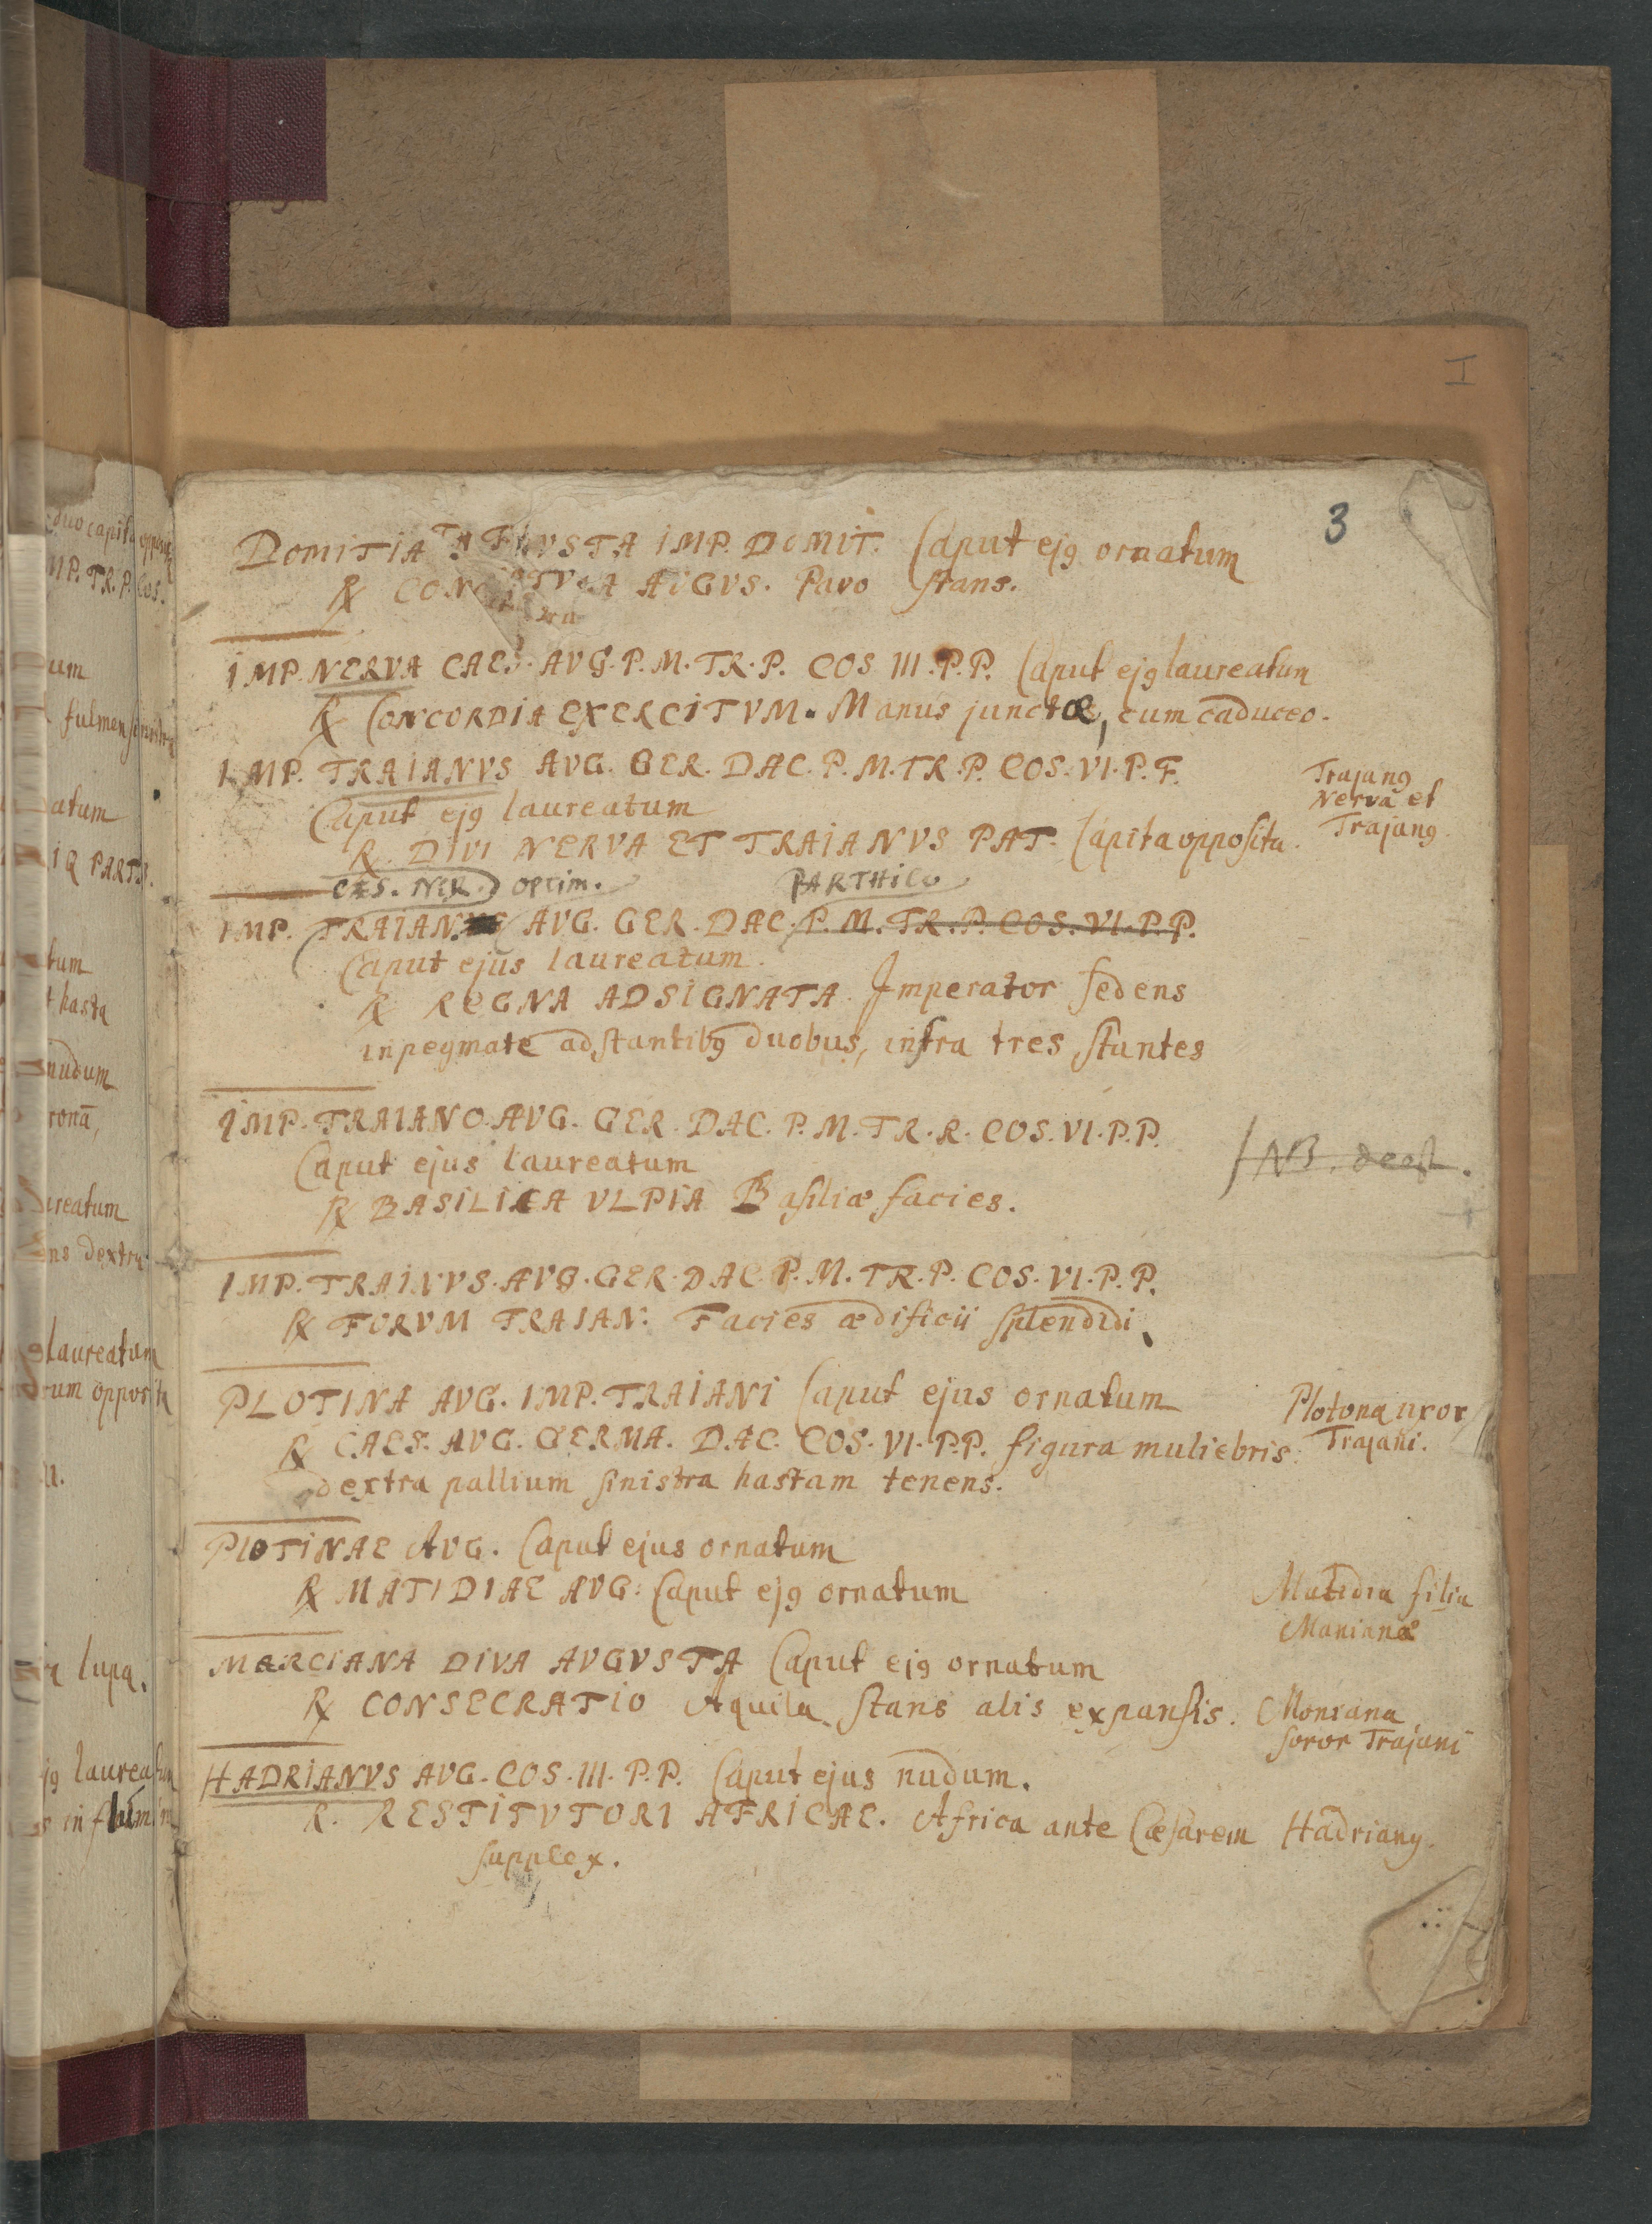 I
3
DOMITIA AVGVSTA IMP. DOMIT. Caput ejꝰ ornatum
℞ AVGVS. Pavo stans.
IMP. NERVA CAES. AVG. P. M. TR. P. COS III. P. P. Caput ejꝰ laureatum
℞ CONCORDIA EXERCITVM. Manus junctæ, cum caduceo.
IMP. TRAIANVS AVG. GER. DAC. P. M. TR. P. COS. VI. P. F.
Caput ejꝰ laureatum
℞. DIVI NERVA ET TRAIANVS PAT. Capita opposita.
Trajanꝰ
Nerva et
Trajanꝰ.
CÆS. NER. OPTIM. PARTHICO
IMP. TRAIAN AVG. GER. DAC. P. M. TR. P. COS. VI. P. P.
Caput ejus laureatum.
℞ REGNA ADSIGNATA. Imperator sedens
in pegmate adstantibꝰ duobus, infra tres stantes
IMP. TRAIANO. AVG. GER. DAC. P. M. TR. R. COS. VI. P. P.
Caput ejus laureatum
℞ BASILICA VLPIA Basiliæ facies.
NB. deest.
IMP. TRAINVS. AVG. GER. DAC. P. M. TR. P. COS. VI. P. P.
℞ FORVM TRAIAN: Facies ædificii splendidi.
PLOTINA AVG. IMP. TRAIANI Caput ejus ornatum
℞ CAES. AVG. GERMA. DAC. COS. VI. P. P. figura muliebris
dextra pallium sinistra hastam tenens.
Plotona uxor
Trajani.
PLOTINAE AVG. Caput ejus ornatum
℞ MATIDIAE AVG: Caput ejꝰ ornatum
Matidia filia
Manianæ
MARCIANA DIVA AVGVSTA Caput ejꝰ ornatum
℞ CONSECRATIO Aquila stans alis expansis.
Moniana
soror Trajani
HADRIANVS AVG. COS. III. P. P. Caput ejus nudum.
R. RESTITVTORI AFRICAE. Africa ante Cæsarem
supplex.
Hadrianꝰ.